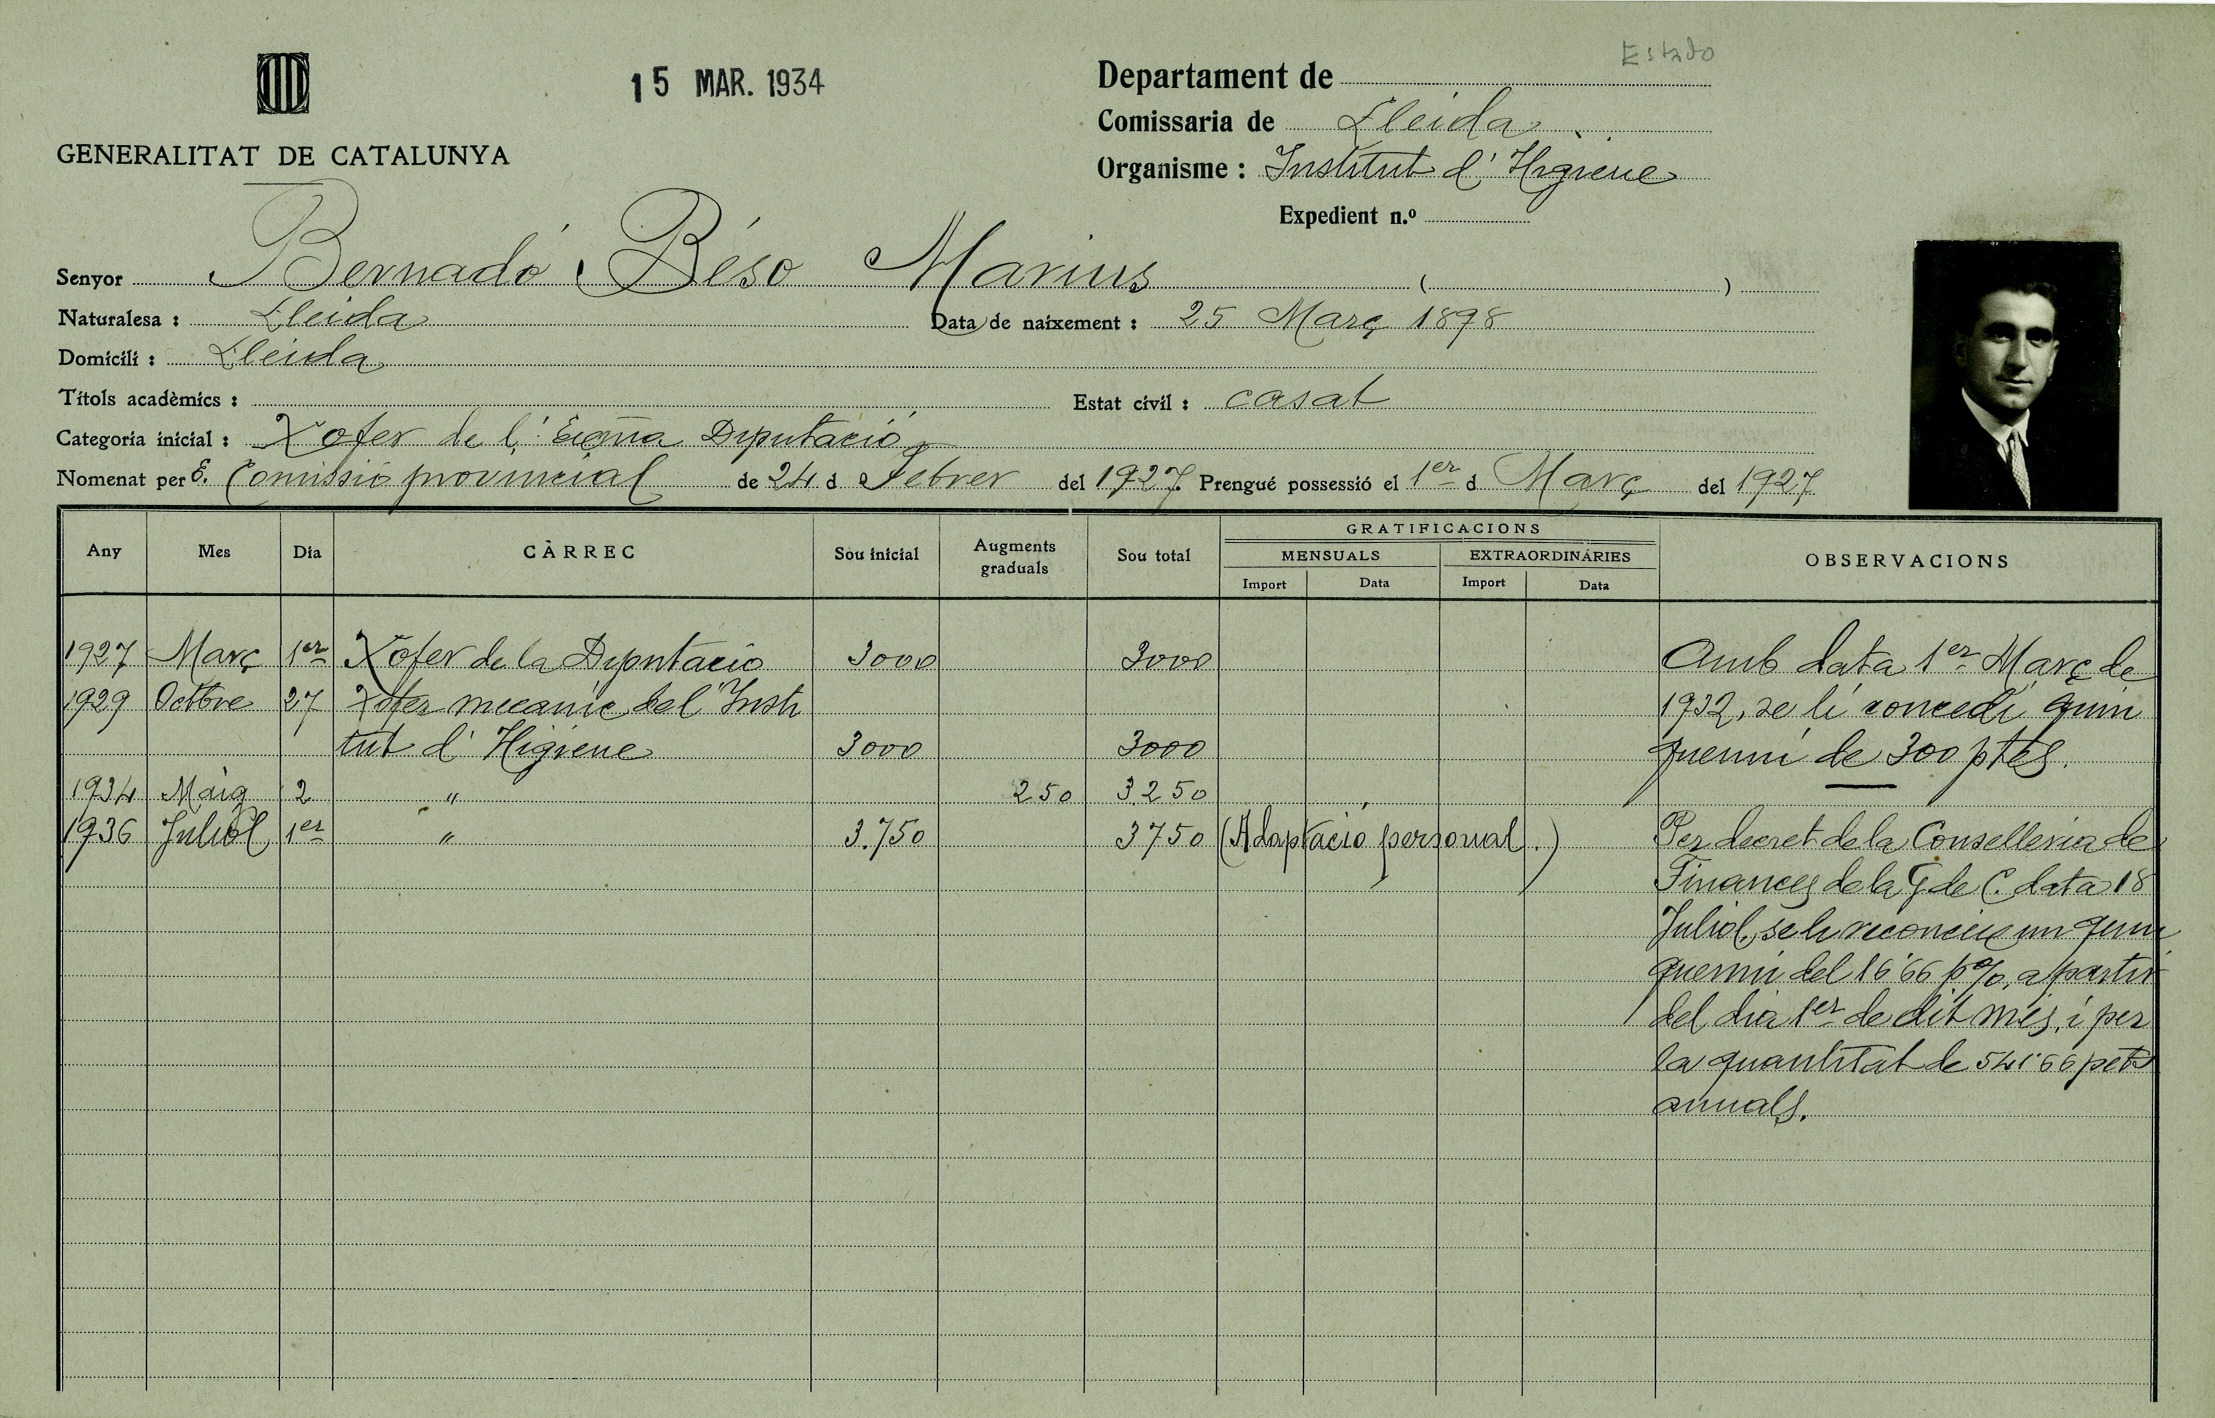 Estado
15 MAR. 1934
Departament de
Comissaria de Lleida
GENERALITAT DE CATALUNYA
Organisme : Institut d' Higiene
Expedient n.º
Senyor Bernadó Béso Marius ( )
Naturalesa : Lleida Data de naixement : 25 Març 1898
Domicili : Lleida
Títols acadèmics : Estat civil : casat
Categoria inicial : Xofer de l' Exma Diputació
Nomenat per E. Comissió provincial de 24 d Febrer del 1927. Prengué possessió el 1er d Març del 1927
GRATIFICACIONS
Any Mes Dia CÀRREC Sou inicial Augments graduals Sou total MENSUALS EXTRAORDINÁRIES OBSERVACIONS
Import Data Import Data
1927 Març 1er Xofer de la Diputacio 3000 3000 Amb data 1er Març de
1929 Octbre 27 Xofer mecanic del Insti 1932, se li concedí quin
tut d' Higiene 3000 3000 quenni de 300 ptes.
1934 Maig 2 " 250 3250
1936 Juliol 1er " 3.750 3750 (Adaptació personal.) Per decret de la Conselleria de
Finances de la G de C. data 18
Juliol, se li reconeix un quin
quenni del 16'66 p%, a partir
del dia 1er de dit mes, i per
la quantitat de 541'66 pets
anuals.